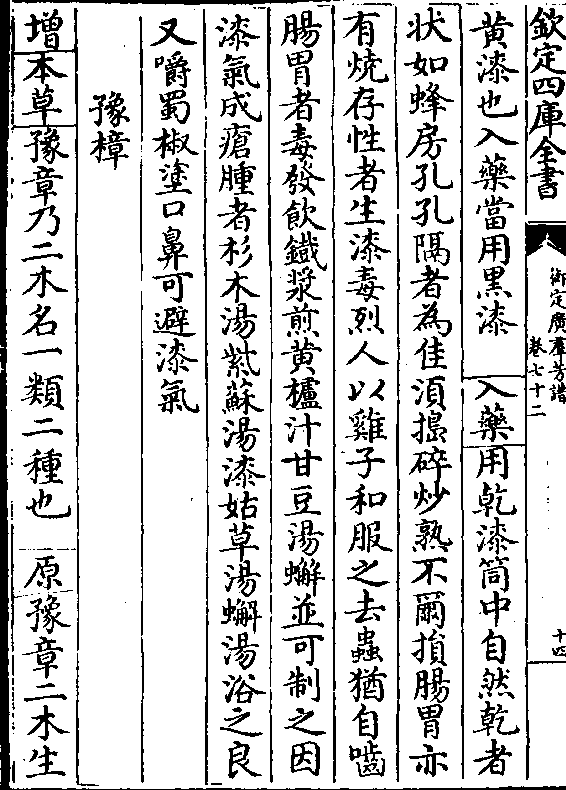 欽定四庫全書
御定廣羣芳譜
卷七十二
十四
黄漆也入藥當用黒漆 入藥用乾漆筒中自然乾者
状如蜂房孔孔隔者為佳須搗碎炒熟不爾損腸胃亦
有燒存性者生漆毒烈人以雞子和服之去蟲猶自嚙
腸胃者毒發飲鐵漿煎黄櫨汁甘豆湯蠏並可制之因
漆氣成瘡腫者杉木湯紫蘇湯漆姑草湯蠏湯浴之良
又嚼蜀椒塗口鼻可避漆氣
豫樟
增本草豫章乃二木名一類二種也 原豫章二木生